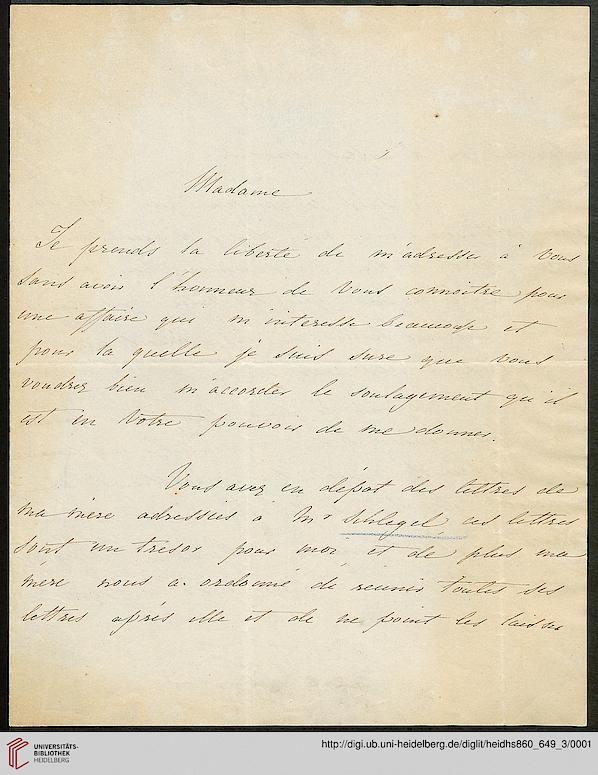 Madame
Je prends la liberté de m'adresser à Vous
sans avoir l'honneur de Vous connoitre pour
une affaire qui m'interesse beaucoup et
pour la quelle je suis sure que vous
voudrez bien m'accorder le soulagement qu'il
est en Votre pouvoir de me donner.
Vous avez en dépot des lettres de
ma mère adressées à Mr Schlegel, ces lettres
sont un tresor pour moi, et de plus ma
mère nous a ordonné de reunir toutes ses
lettres après elle et de ne point les laisser
UNIVERSITÄTS-
BIBLIOTHEK
HEIDELBERG
http://digi.ub.uni-heidelberg.de/diglit/heidhs860_649_3/0001